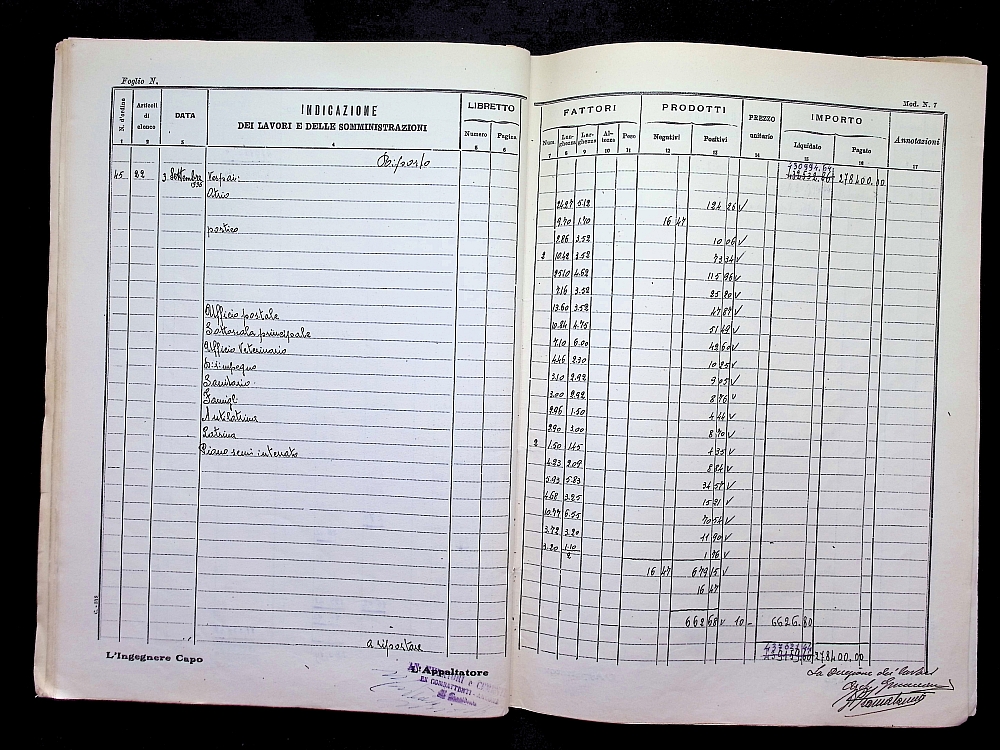 Foglio N.
N. d'ordine Articoli di elenco DATA INDICAZIONE DEI LAVORI E DELLE SOMMINISTRAZIONI LIBRETTO Numero Pagina
1 2 3 4 5 6
Mod. N. 7
FATTORI PRODOTTI PREZZO unitario IMPORTO Annotazioni
Num. Lunghezza Larghezza Altezza Peso Negativi Positivi Liquidato Pagato
7 8 9 10 11 12 13 14 15 16 17
Riporto
430994.64
278400.00
45 22 3 Settembre 1936 Vespai:
Atrio
24.27 5.12 124 26 v
9.70 1.70 16 47
portico
2.86 3.52 10 06 v
2 10.42 3.52 73 34 v
25.10 4.62 115 96 v
7.16 3.52 25 20 v
13.60 3.52 47 87 v
Ufficio postale
10.84 4.75 51 49 v
Sottosala principale
7.10 6.00 42 60 v
Ufficio Veterinario
4.46 2.30 10 25 v
Disimpegno
3.10 2.92 9 05 v
Sanitario
3.00 2.92 8 76 v
Famigli
2.96 1.50 4 44 v
Antilatrina
2.90 3.00 8 70 v
Latrina
2 1.50 1.45 4 35 v
Piano semi interrato
4.23 2.09 8 84 v
5.93 5.83 34 57 v
4.68 3.25 15 21 v
10.77 6.55 70 54 v
3.72 3.20 11 90 v
3.20 1.10/2 1 76 v
16 47 679 15 v
16 47
662 68 v 10 - 6626.80
a riportare
278400.00
C. - 313
L'Ingegnere Capo
L'Appaltatore
La Direzione dei lavori